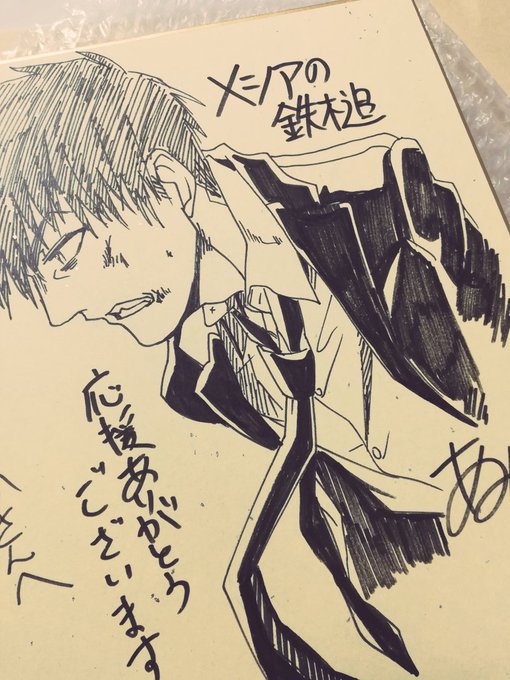 メシアの
鉄槌
応援ありがとう
ございます
さんへ
あ